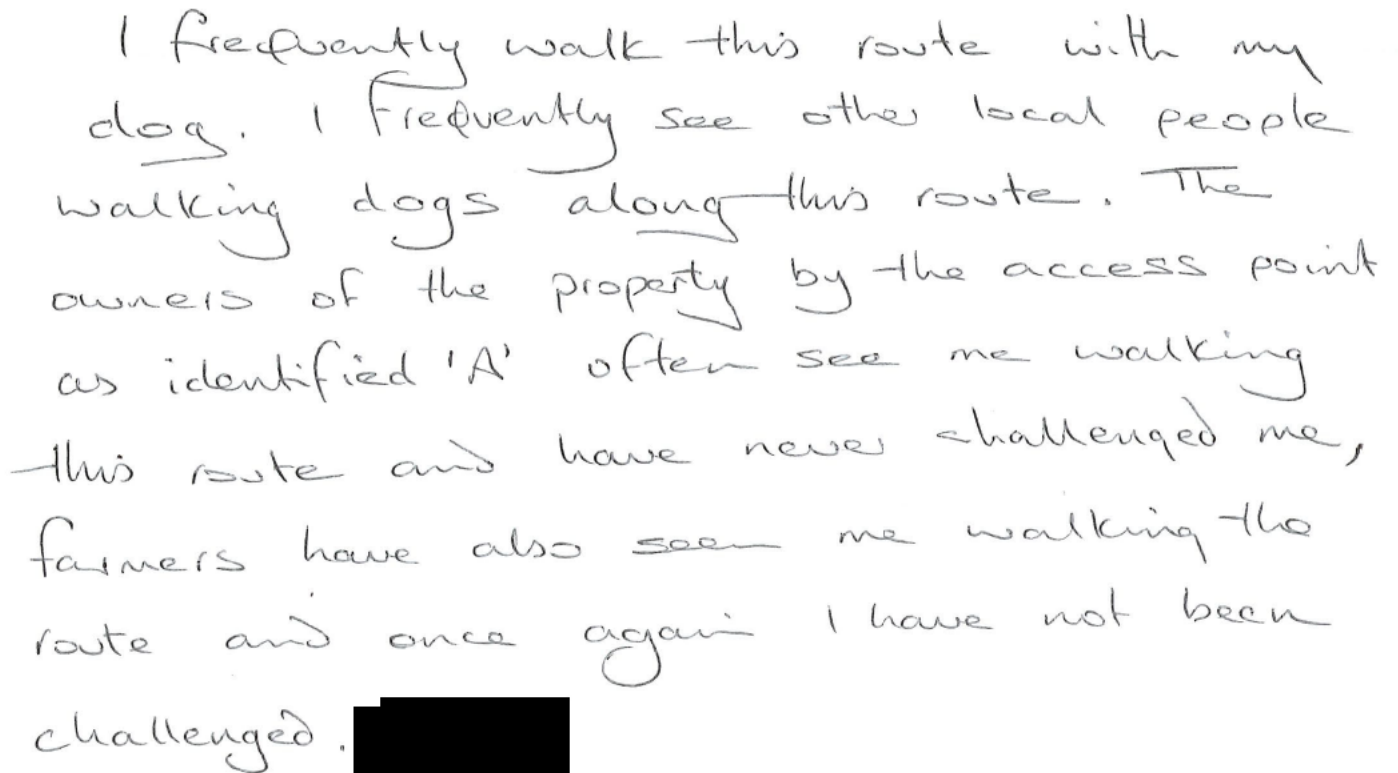 I frequently walk this route with my
dog. I frequently see other local people
walking dogs along this route. The
owners of the property by the access point
as identified 'A' often see me walking
this route and have never challenged me,
farmers have also seen me walking the
route and once again I have not been
challenged.